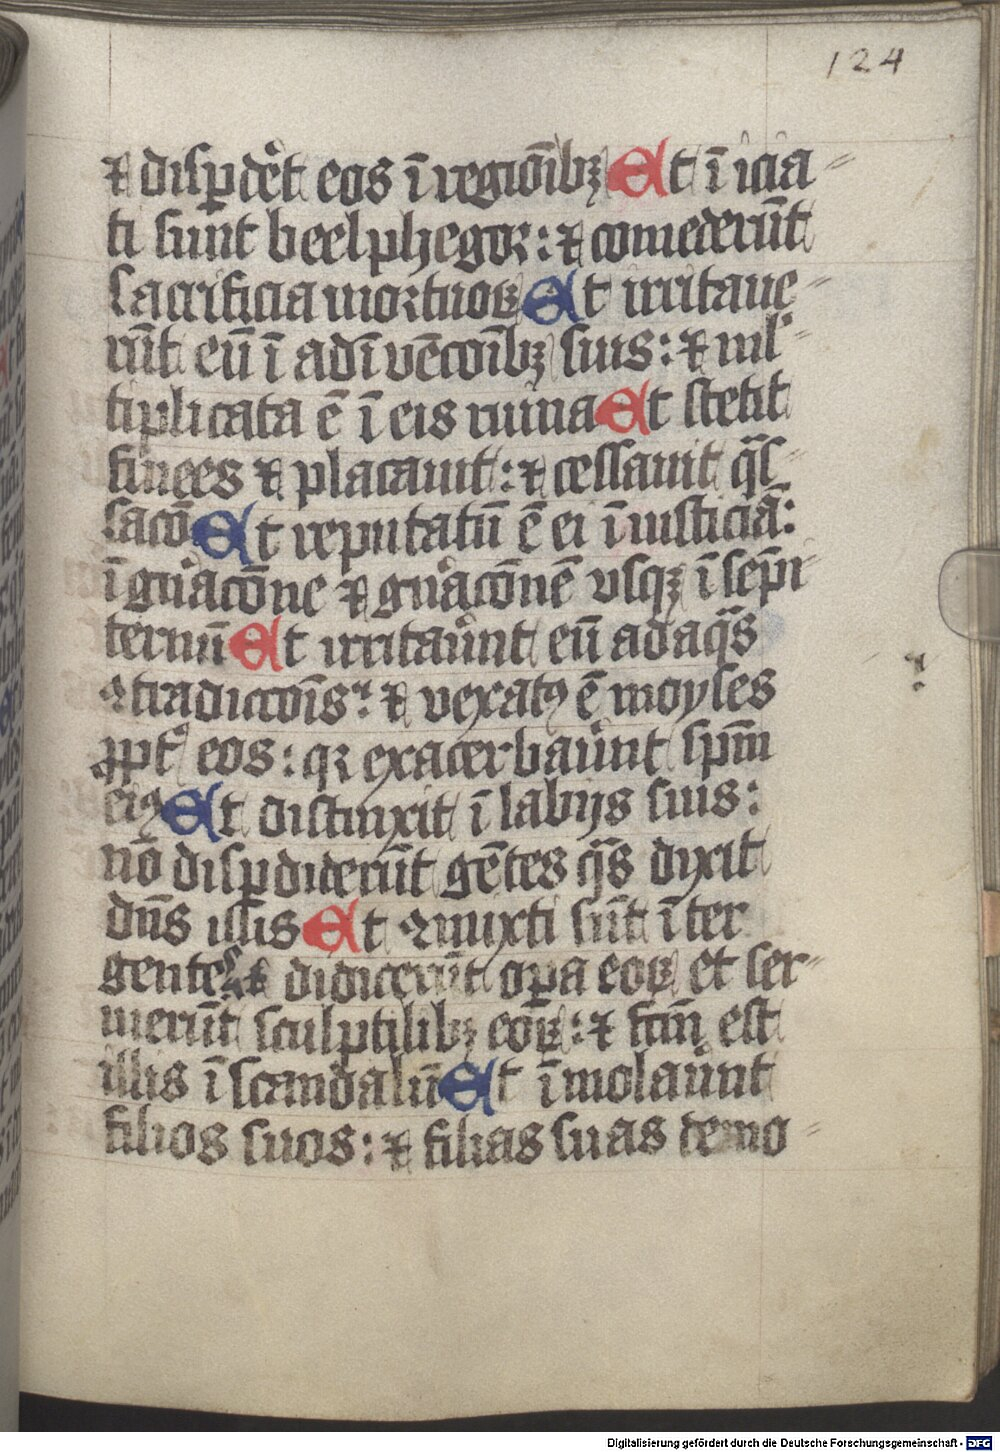 124
⁊ disp̲deret eos ī regionibꝫ Et ī icia-
ti sunt beelphegor: ⁊ comederūt
sacrificia mortuoꝝ Et irritaue-
rūt eū ī adīuēcōībꝫ suis: ⁊ ml'-
tiplicata ē ī eis ruina Et stetit
finees ⁊ placauit: ⁊ cessauit q̄s-
sacō Et reputatū ē ei ī iusticiā:
ī gn̄acōne ⁊ gn̄acōnē vsqꝫ ī sēpi-
ternū Et irritaūnt eū ad aq̄s
ꝯtradiccōis: ⁊ vexatꝰ ē moyses
ꝓpt' eos: qꝛ exacerbaūnt sp̄m
eiꝰ Et distinxit ī labijs suis:
nō disꝑdiderūt gētes q̄s dixit
dn̄s illis Et ꝯmixti sūt īter
gentes ⁊ didicerūt oꝑa eoꝝ et ser-
uierūt sculptilibꝫ eoꝝ: ⁊ fcm̄ est
illis ī scandalū Et īmolaūnt
filios suos: ⁊ filias suas demo-
Digitalisierung gefördert durch die Deutsche Forschungsgemeinschaft - DFG